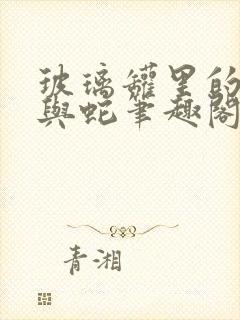 玻璃罐里的
與蛇筆趣閣
青湘